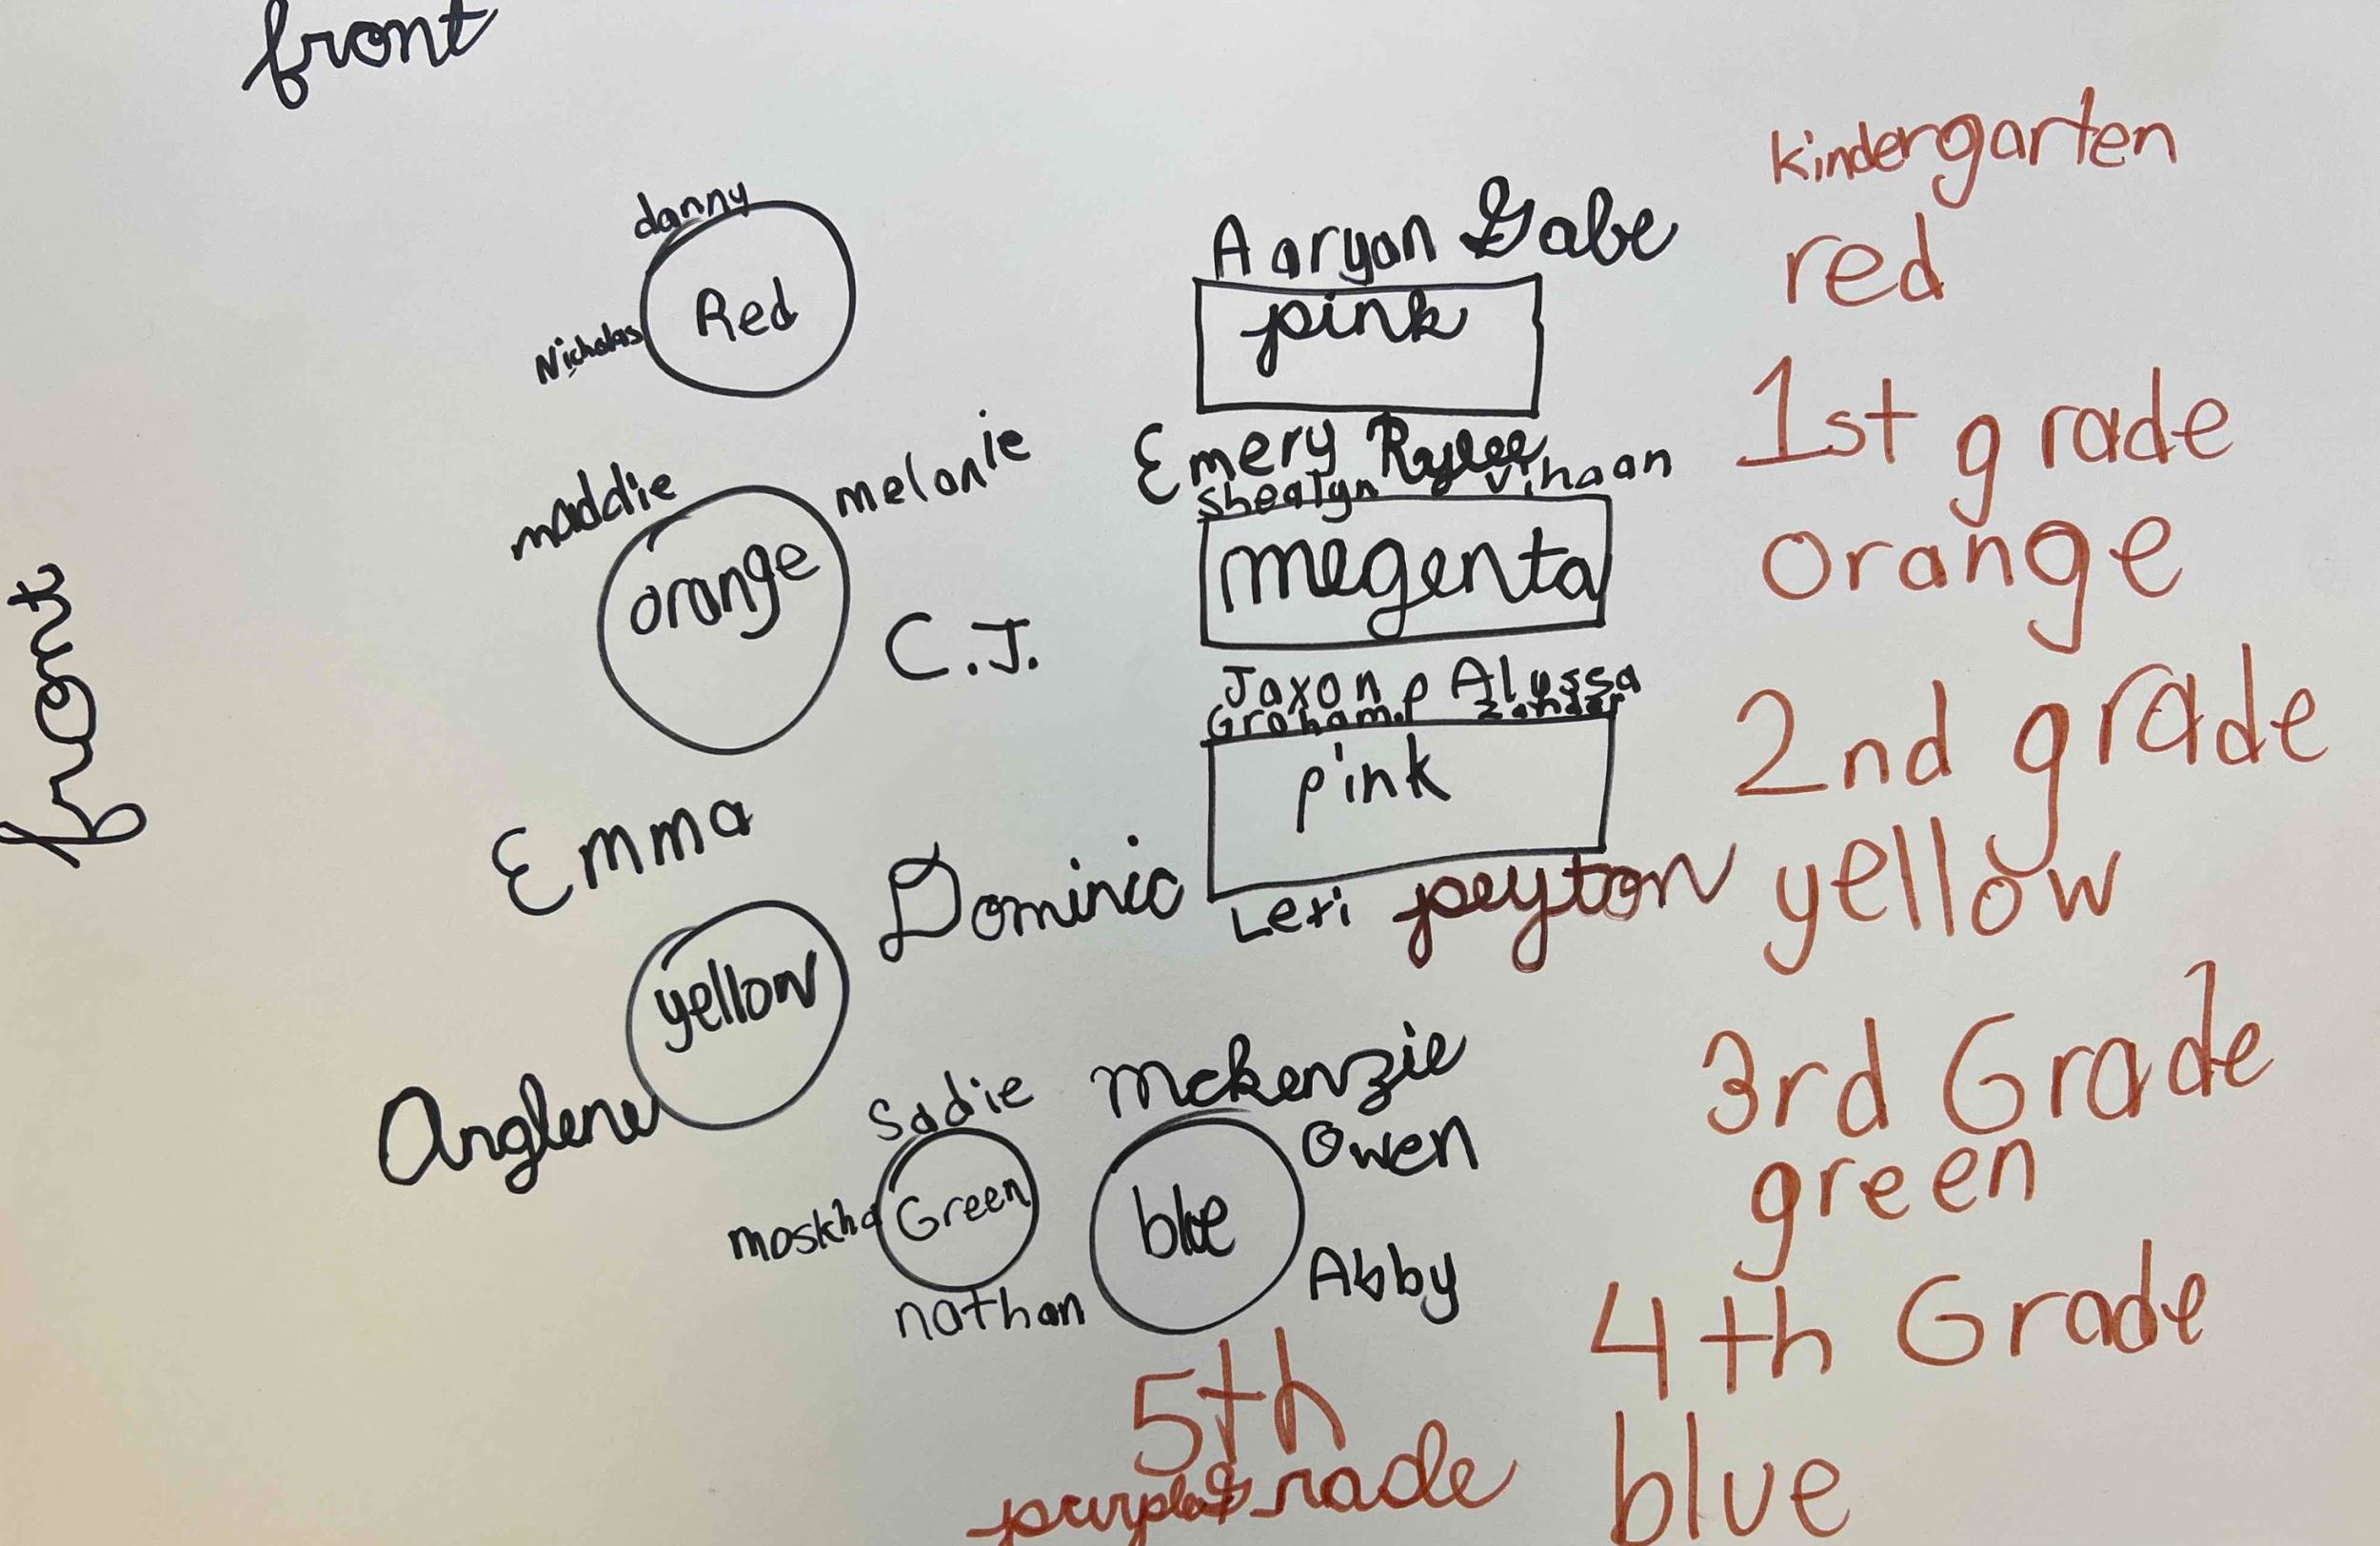 front
front
danny
Red
Nicholas
maddie
melonie
orange
C.J.
Emma
Dominic
yellow
Anglene
Sadie
Green
moskha
nathan
Mckenzie
Owen
blue
Abby
Aaryan Gabe
pink
Emery Rylee
Shealyn Vihaan
megenta
Jaxon p Alyssa
Graham.p Zander
pink
Lexi peyton
kindergarten
red
1st grade
orange
2nd grade
yellow
3rd Grade
green
4th Grade
blue
5th
Grade
purple